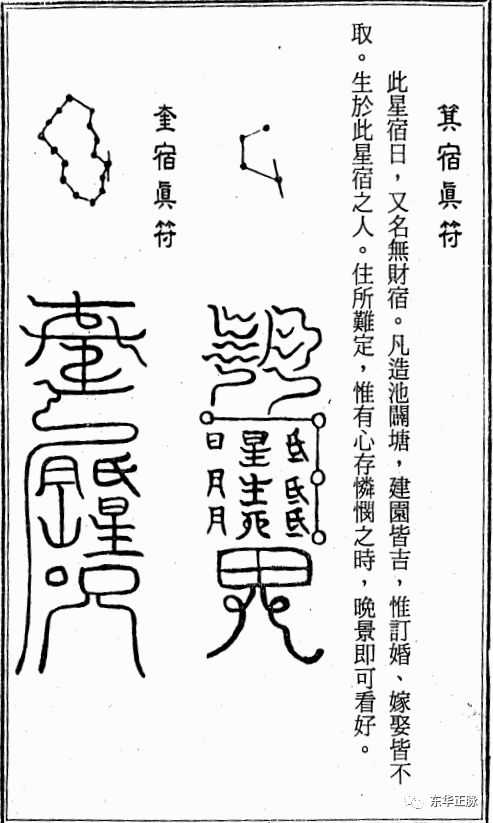 箕宿眞符
此星宿日，又名無財宿。凡造池闢塘，建園皆吉，惟訂婚、嫁娶皆不
取。生於此星宿之人。住所難定，惟有心存憐憫之時，晚景即可看好。
氐氐氐
星生死
日月月
奎宿眞符
东华正脉